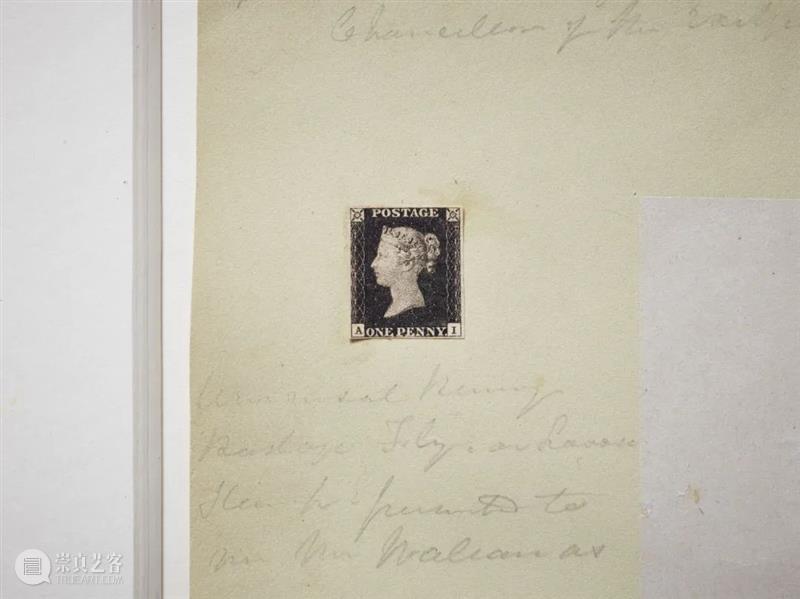 Chancellor of the
POSTAGE
A ONE PENNY. I
Universal Penny
Postage Fly: or Loose
presented to
me Mr Wallace as
崇真艺客
TRUEART.COM